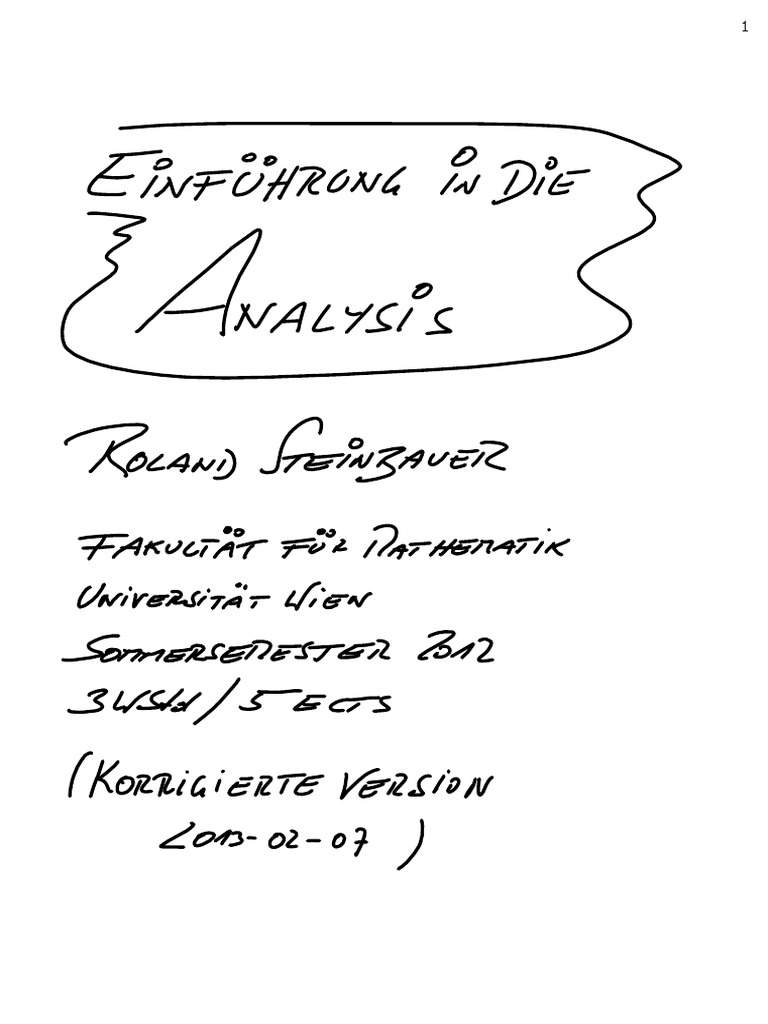 1
EINFÜHRUNG IN DIE
ANALYSIS
ROLAND STEINBAUER
FAKULTÄT FÜR MATHEMATIK
UNIVERSITÄT WIEN
SOMMERSEMESTER 2012
3 WStd / 5 ECTS
(KORRIGIERTE VERSION
2013-02-07)